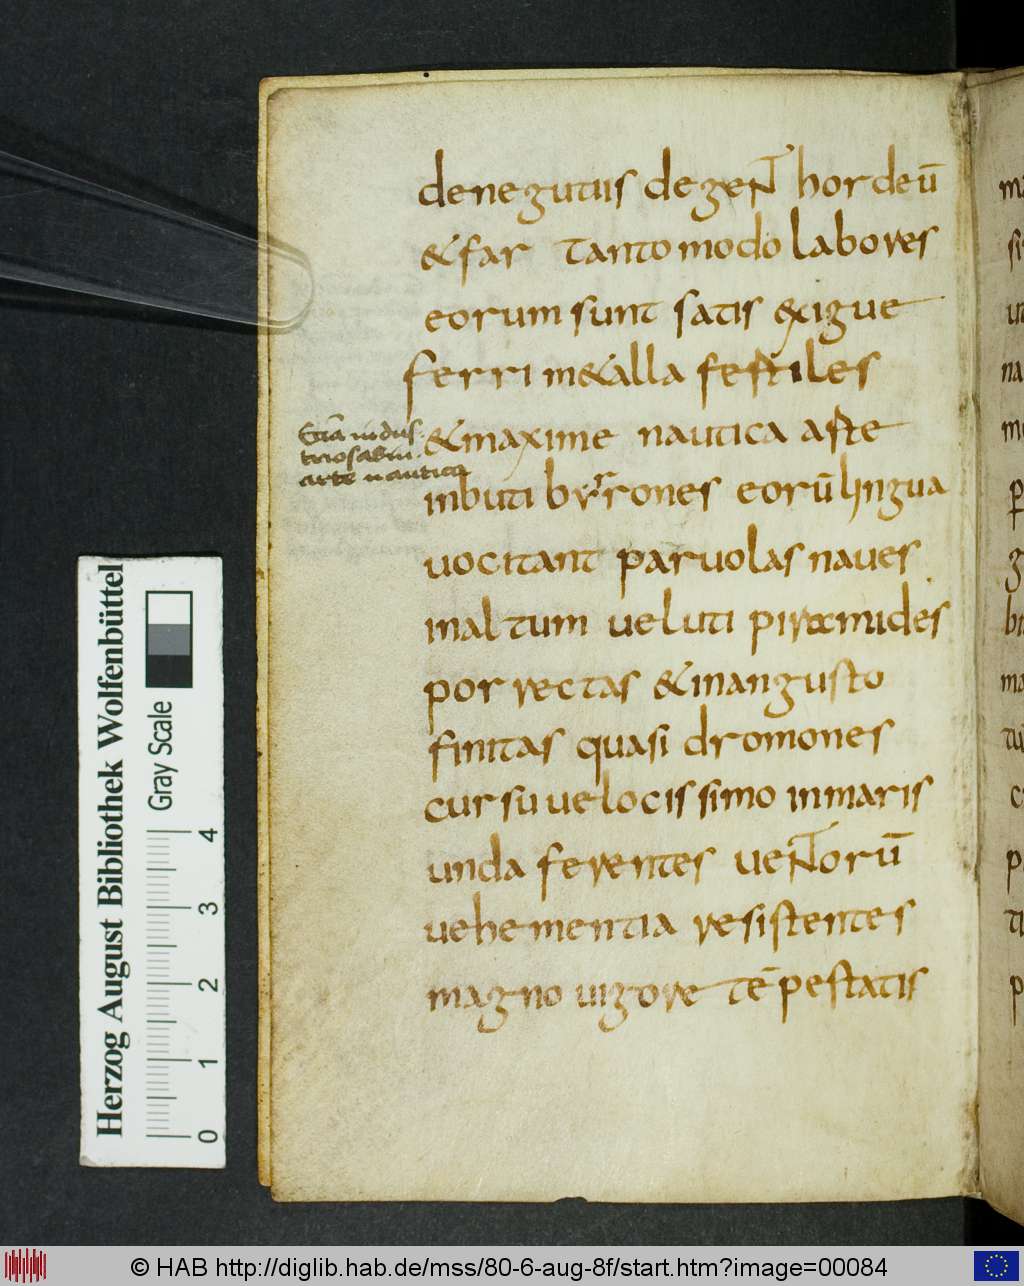 denegutiis degeNT hordeū
&far tantomodo labores
eorum sunt satis exigue
ferri m&alla festiles
&maxime nautica aste
Etiā indus
triosae in
arte nautica
inbuti byrrones eorū lingua
vocitant parvolas naves
inaltum veluti piramides
porrectas &inangusto
finitas quasi dromones
cursu velocissimo inmaris
unda ferentes veNTorū
vehementia resistentes
magno vigore tēpestatis
Herzog August Bibliothek Wolfenbüttel
Gray Scale
0 1 2 3 4
© HAB http://diglib.hab.de/mss/80-6-aug-8f/start.htm?image=00084